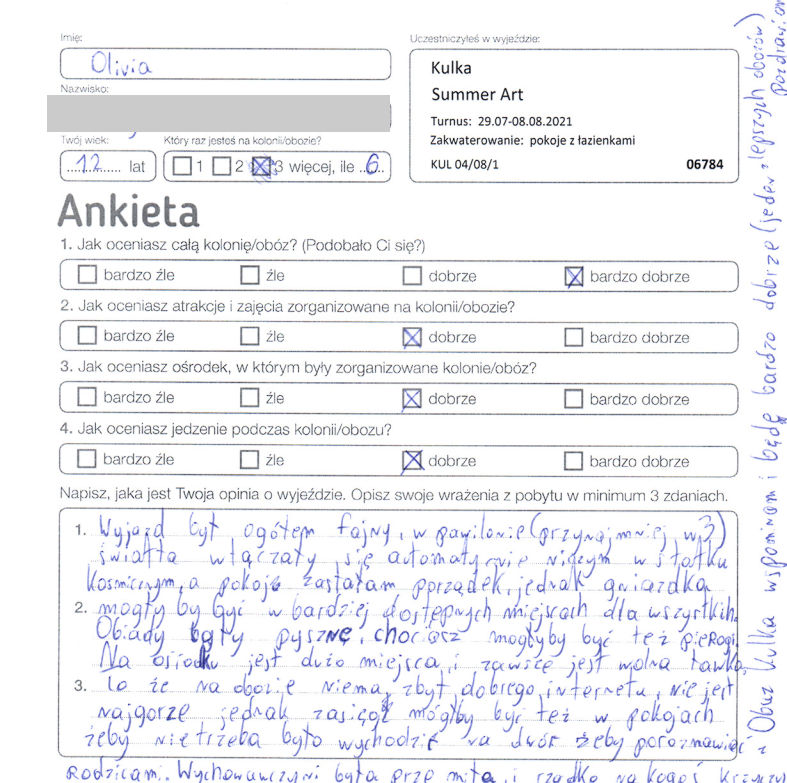 Imię:
Olivia
Nazwisko:
Twój wiek:
12 lat
Który raz jesteś na kolonii/obozie?
1 2 3 więcej, ile 6
Uczestniczyłeś w wyjeździe:
Kulka
Summer Art
Turnus: 29.07-08.08.2021
Zakwaterowanie: pokoje z łazienkami
KUL 04/08/1 06784
Ankieta
1. Jak oceniasz całą kolonię/obóz? (Podobało Ci się?)
bardzo źle źle dobrze bardzo dobrze
2. Jak oceniasz atrakcje i zajęcia zorganizowane na kolonii/obozie?
bardzo źle źle dobrze bardzo dobrze
3. Jak oceniasz ośrodek, w którym były zorganizowane kolonie/obóz?
bardzo źle źle dobrze bardzo dobrze
4. Jak oceniasz jedzenie podczas kolonii/obozu?
bardzo źle źle dobrze bardzo dobrze
Napisz, jaka jest Twoja opinia o wyjeździe. Opisz swoje wrażenia z pobytu w minimum 3 zdaniach.
1. Wyjazd był ogółem fajny, w pawilonie (przynajmniej w 3)
światła włączały się automatycznie niczym w statku
kosmicznym, a pokoje zastałam porządek, jednak gniazdka
2. mogły by być w bardziej dostępnych miejscach dla wszystkich.
Obiady były pyszne, chociasz mogłyby być też pierogi.
Na ośrodku jest dużo miejsca, i zawsze jest wolna ławka,
3. to że na obozie niema zbyt dobrego internetu, nie jest
najgorze jednak zasięg mógłby być też w pokojach
żeby nietrzeba było wychodzić na dwór żeby porozmawiać z
Rodzicami. Wychowawczyni była prze miła, i rzadko na kogoś krzyczy
Obuz Kulka wspominam i będę bardzo dobrze (jeden z lepszych obozów)